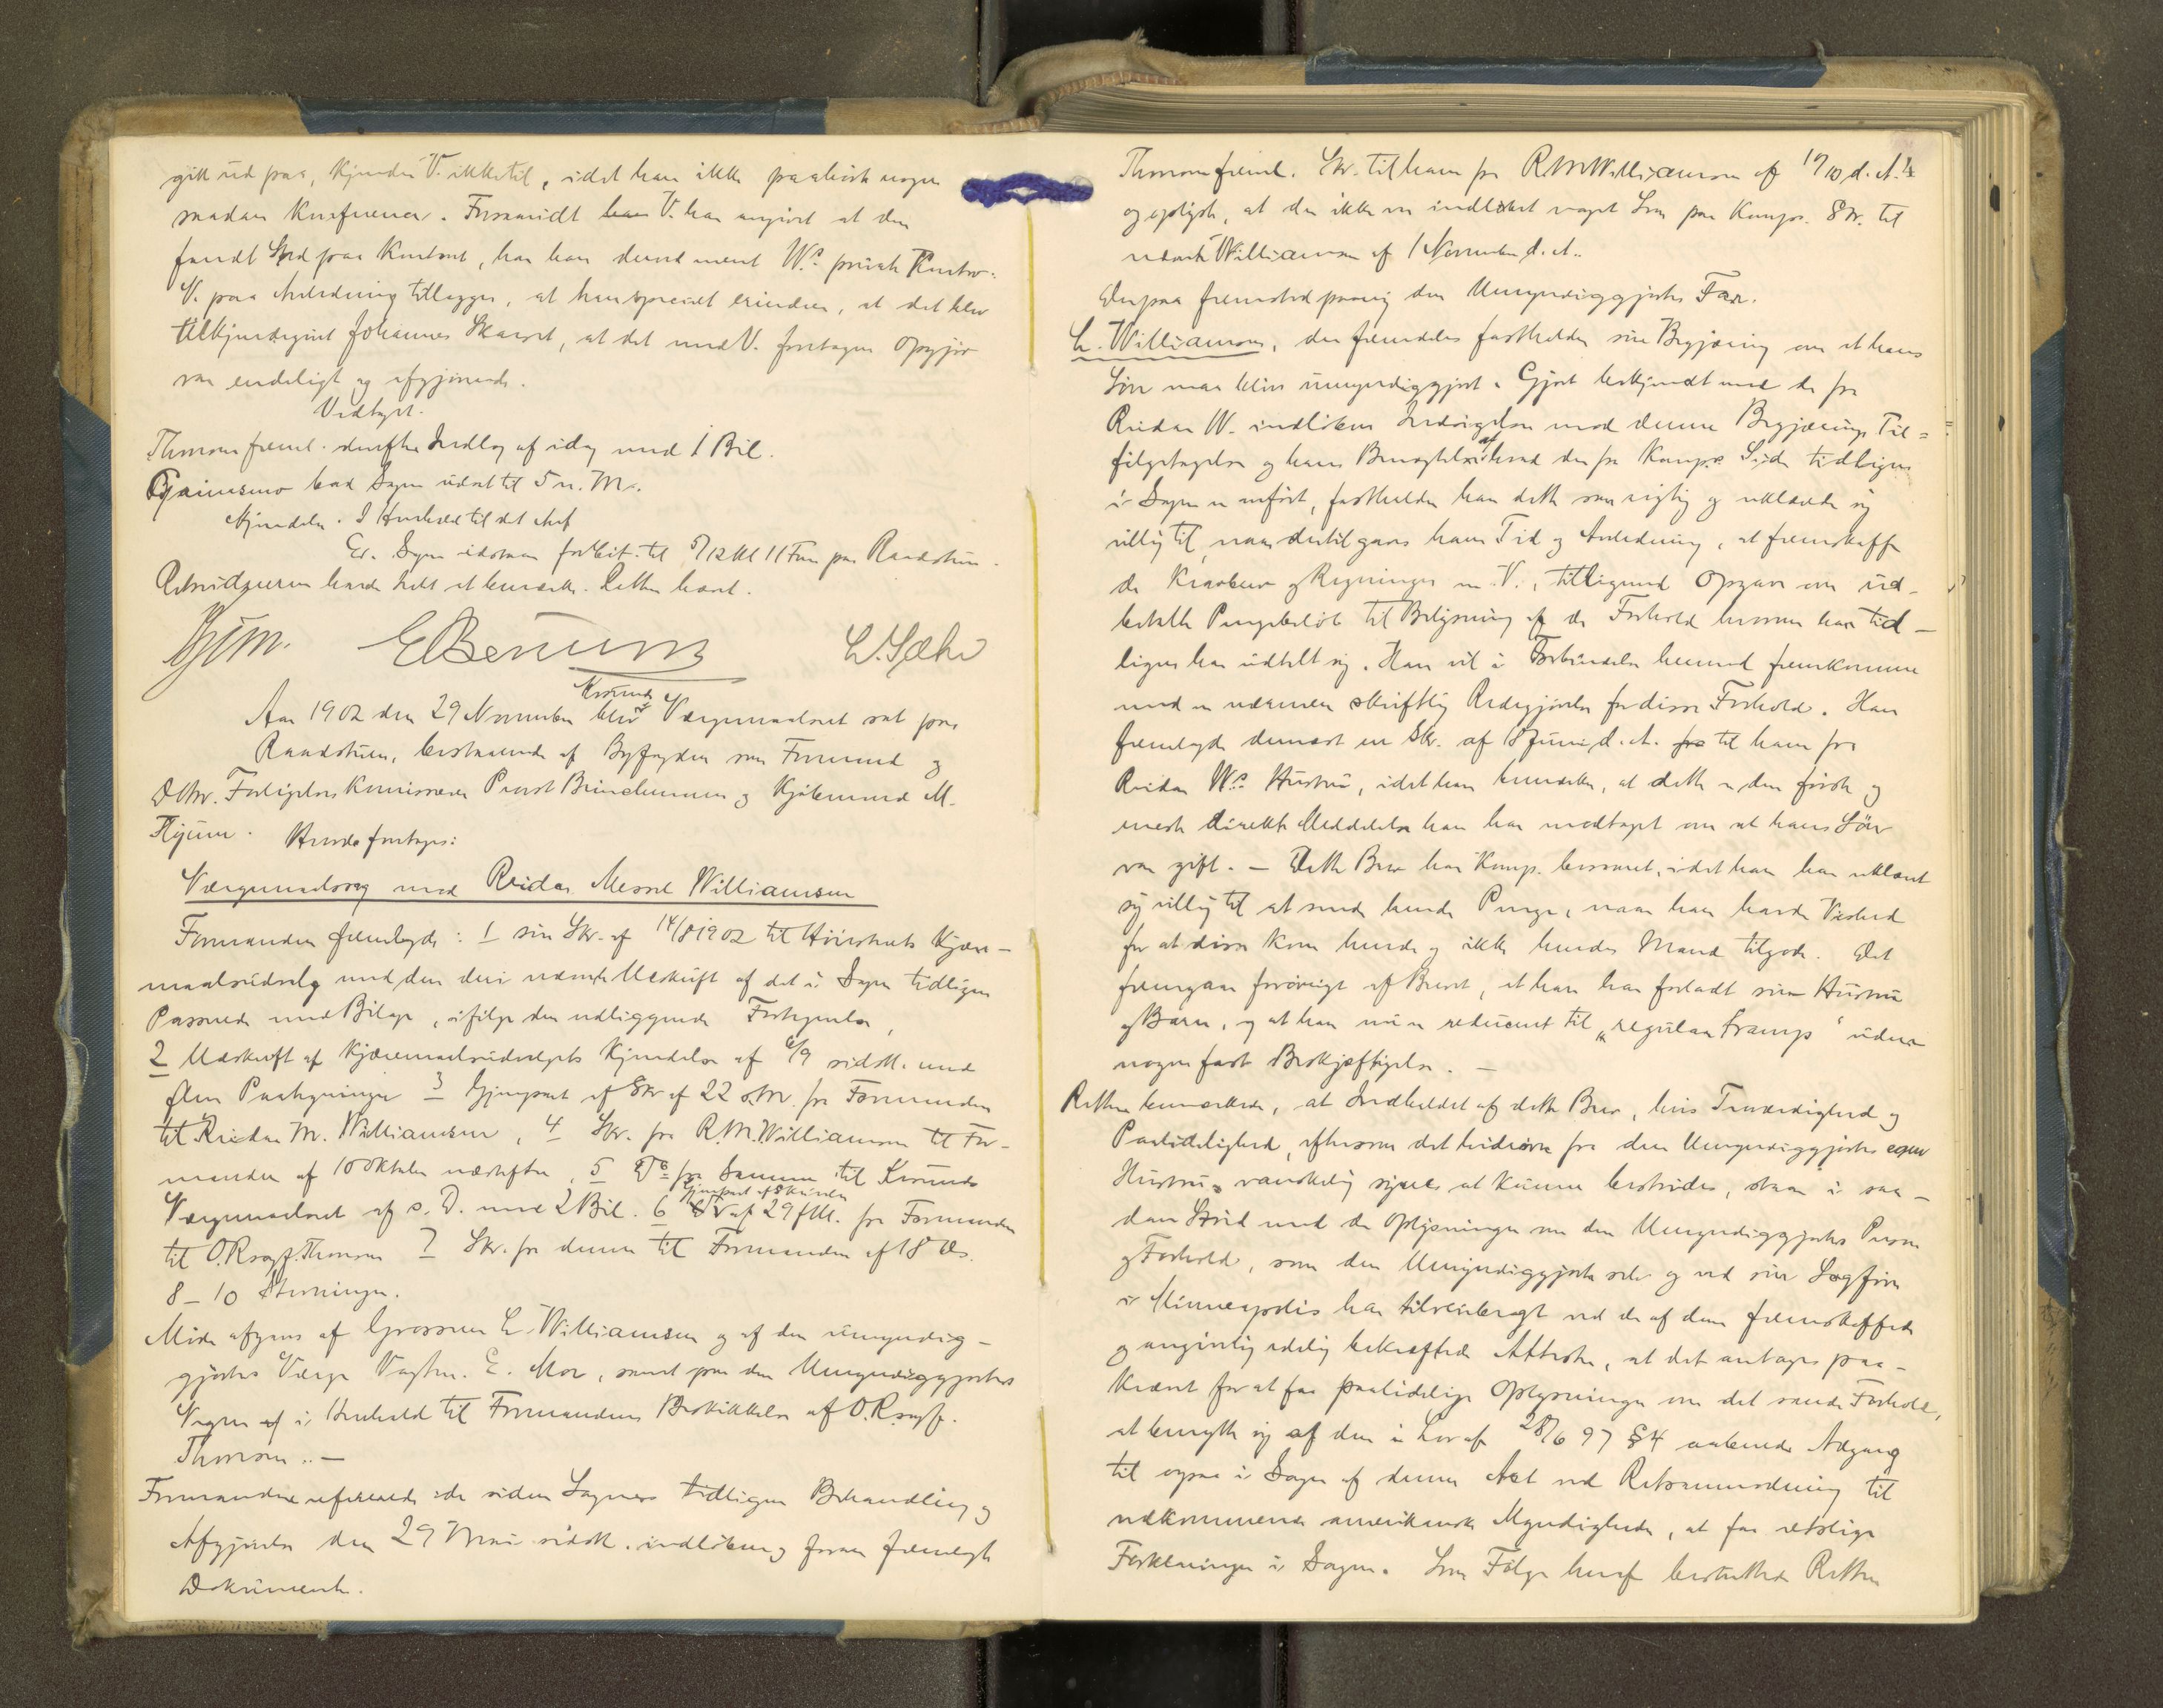 gik ud paa, kjender V. ikke til, idet han ikke paahørte nogen
saadan Konference. Forsaavidt V. har angivet at den
fandt Sted paa Kontoret, har han dermed ment W.s private Kontor.
V. paa Anledning tillægger, at han specielt erindrer, at det blev
tilkjendegivet Johannes Skaret, at det med V. foretagne Opgjør
var endeligt og afgjørende.
Vedtaget.
Thomson freml. derefter Indlæg af idag med 1 Bil.
bad Sagen udsat til 5 n. M.
Kjendelse. I Henhold til det Anf.
Er. Sagen idetman forbeh. til 5/12 Kl 11 Form paa Raadstuen.
Retsvidnerne havde Intet at bemærke. Retten hævet.
Aar 1902 den 29 November blev Kr.sunds Værgemaalsret sat paa
Raadstuen, bestaaende af Byfogden som Formand og
D'Hrr. Forligelseskommissærer Provst Brinchmann og Kjøbmand M.
Hvorda foretoges:
Værgemaalssag mod Reidar Messel Williamsen
Formanden fremlagde: 1 sin Skr. af 14/8 1902 til Høiesterets Kjære-
maalsudvalg med den deri nævnte Udskrift af det i Sagen tidligere
Passerede med Bilage, ifølge den vedliggende Fortegnelse,
2 Udskrift af Kjæremaalsudvalgets Kjendelse af 6/9 sidstl. med
flere Paategninger 3 Gjenpart af Skr af 22 s.M. fra Formanden
til Reidar M. Williamsen, 4 Skr. fra R.M. Williamson til For-
manden af 10 Oktober næstefter, 5 Do fra Samme til Krsunds
Værgemaalsret af s. D. med 2 Bil. 6 Gjenpart af Skrivelse af 29 f.M. fra Formanden
til O.Rsagf. Thomson 7 Skr. fra denne til Formanden af 18 ds.
8 – 10 Stevninger.
Møde afgaves af Grosserer L. Williamsen og af den umyndig-
gjortes Værge Vagtm. E. Moe, samt paa den Umyndiggjortes
Vegne af i Henhold til Formandens Beskikkelse af O.Rsagf.
Thomson. –
Formanden refererede de siden Sagens tidligere Behandling og
Afgjørelse den 29 Mai sidstl. indløbne og foran fremlagte
Dokumenter.
Thomson freml. Skr. til ham fra R.M. Williamson af 19/10 d. A.
og oplyste, at der ikke var indløbet noget Svar paa Komps. Skr. til
nævnte Williamson af 1 November d. A.
Derpaa fremstod paany den Umyndiggjortes Far.
L. Williamsen, der fremdeles fastholder sin Begjæring om at hans
Søn maa blive umyndiggjort. Gjort bekjendt med de fra
Reidar W. indløbne Indsigelser mod denne Begjærings Til-
følgetagelse og hans Benægtelse af hvad der fra Komps Side tidligere
i Sagen er anført, fastholder han dette som rigtig og erklærede sig
villig til, naar dertil gaves ham Tid og Anledning, at fremskaffe
de Kravbrev og Regninger m. V., tilligemed Opgave over ud-
betalte Pengebeløb til Belysning af de Forhold hvorom han tid-
ligere har udtalt sig. Han vil i Forbindelse hermed fremkomme
med en nærmere skriftlig Redegjørelse for disse Forhold. Han
fremlagde dernæst en Skr. af 18 Juni d. A. til ham fra
Reidar W.s Hustru, idet han bemærker, at dette er den første og
mest direkte Meddelelse han har modtaget om at hans Søn
var gift. – Dette Brev har Komp. besvaret, idet han har erklæret
sig villig til at sende hende Penge, naar han havde Vished
for at disse kom hende og ikke hendes Mand tilgode. Det
fremgaar forøvrigt af Brevet, at han har forladt sin Hustru
og Børn, og at han nu er reduceret til „regular tramp" uden
nogen fast Beskjæftigelse. –
Retten bemærkede, at Indholdet af dette Brev, hvis Troværdighed og
Paalidelighed, eftersom det hidrører fra den Umyndiggjortes egen
Hustru, vanskelig synes at kunne bestrides, staar i saa-
dan Strid med de Oplysninger om den Umyndiggjortes Person
og Forhold, som den Umyndiggjorte selv og ved sin Sagfører
i Minneapolis har tilveiebragt ved de af dem fremskaffede
og angivelig edelig bekræftede Attester, at det antages paa-
krævet for at faa paalidelige Oplysninger om det sande Forhold,
at benytte sig af den i Lov af 28/6 97 § 4 aabnede Adgang
til ogsaa i Sager af denne Art ved Retsanmodning til
vedkommende amerikanske Myndigheder, at faa retslige
Forklaringer i Sagen. Som Følge heraf besluttede Retten